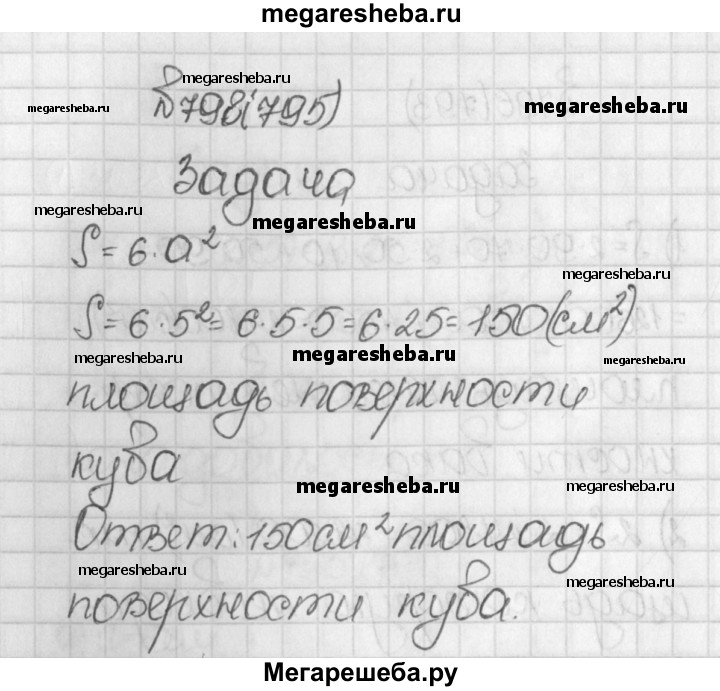 megaresheba.ru
megaresheba.ru
№798(795)
megaresheba.ru
megaresheba.ru
Задача
megaresheba.ru
megaresheba.ru
S=6·a²
megaresheba.ru
S=6·5²=6·5·5=6·25=150(см²)
megaresheba.ru
megaresheba.ru
megaresheba.ru
площадь поверхности
куба
megaresheba.ru
megaresheba.ru
Ответ: 150см² площадь
megaresheba.ru
megaresheba.ru
поверхности куба.
Мегарешеба.ру